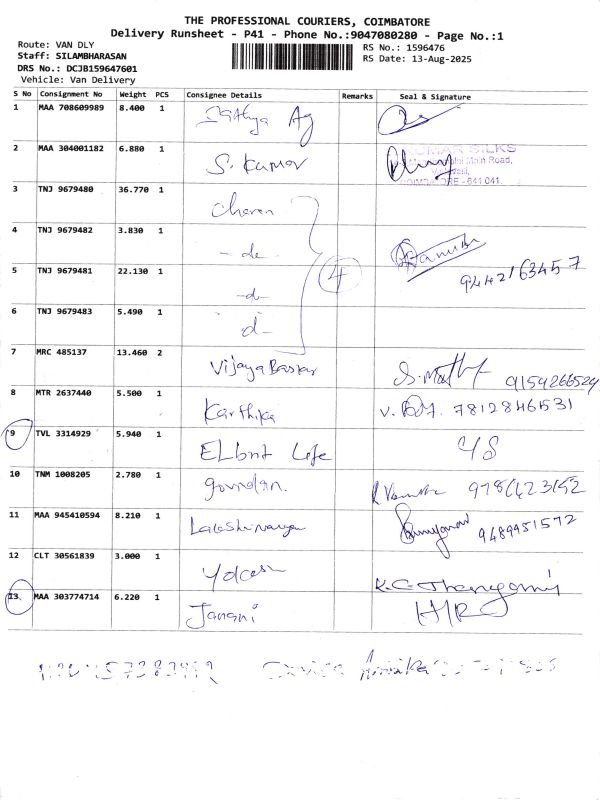 THE PROFESSIONAL COURIERS, COIMBATORE
Delivery Runsheet - P41 - Phone No.:9047080280 - Page No.:1
Route: VAN DLY RS No.: 1596476
Staff: SILAMBHARASAN RS Date: 13-Aug-2025
DRS No.: DCJB159647601
Vehicle: Van Delivery
S No Consignment No Weight PCS Consignee Details Remarks Seal & Signature
1 MAA 708609989 8.400 1 Sathya Ag
2 MAA 304001182 6.880 1 S. Kumar KUMAR SILKS
Main Road,
COIMBATORE - 641 041.
3 TNJ 9679480 36.770 1 Cheran
4 TNJ 9679482 3.830 1 - do - 4
5 TNJ 9679481 22.130 1 -d- 9442163457
6 TNJ 9679483 5.490 1 d-
7 MRC 485137 13.460 2 Vijaya Baskar 9159266529
8 MTR 2637440 5.500 1 Karthika 7812846531
9 TVL 3314929 5.940 1 ELbrit Life
10 TNM 1008205 2.780 1 govindan.
11 MAA 945410594 8.210 1 9489951572
12 CLT 30561839 3.000 1
13 MAA 303774714 6.220 1 Janani